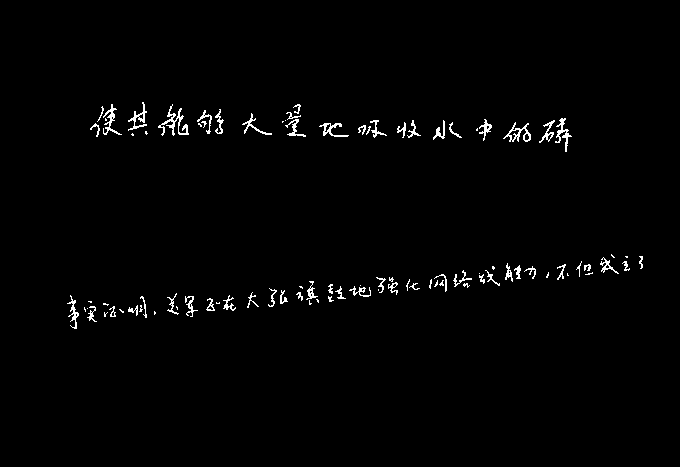 使其能够大量地吸收水中的磷
事实证明,美军正在大张旗鼓地强化网络战能力,不但成立了